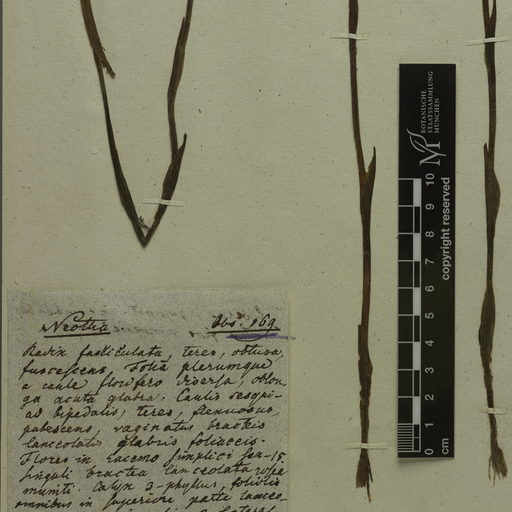 Neottia Obs. 169.
Radix fasciculata, teres, obtusa,
fuscescens, Folia plerumque
a caule florifero diversa, oblon-
ga acuta glabra. Caulis sesqui-
as bipedalis, teres, flexuosus,
pubescens, vaginatus bracteis
lanceolatis glabris foliaceis.
Flores in racemo simplici 15
singuli bractea lanceolata rosea
muniti. Calyx 3-phyllus, foliolis
omnibus in superiore parte lanceo-
BOTANISCHE
STAATSSAMMLUNG
MÜNCHEN
M
copyright reserved
0 1 2 3 4 5 6 7 8 9 10
cm